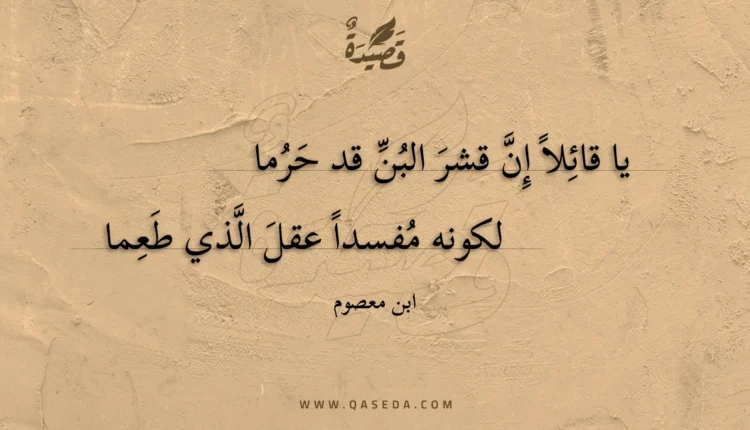 قَصِيْدَةٌ
يا قائِلاً إِنَّ قشرَ البُنِّ قد حَرُما
لكونه مُفسداً عقلَ الَّذي طَعِما
ابن معصوم
WWW.QASEDA.COM